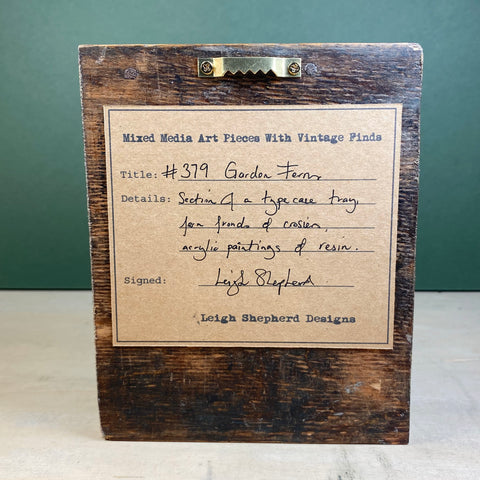 Mixed Media Art Pieces With Vintage Finds
Title: #379 Garden Ferns
Details: Section of a type case tray,
fern fronds & crosier,
acrylic paintings & resin.
Signed: Leigh Shepherd
Leigh Shepherd Designs